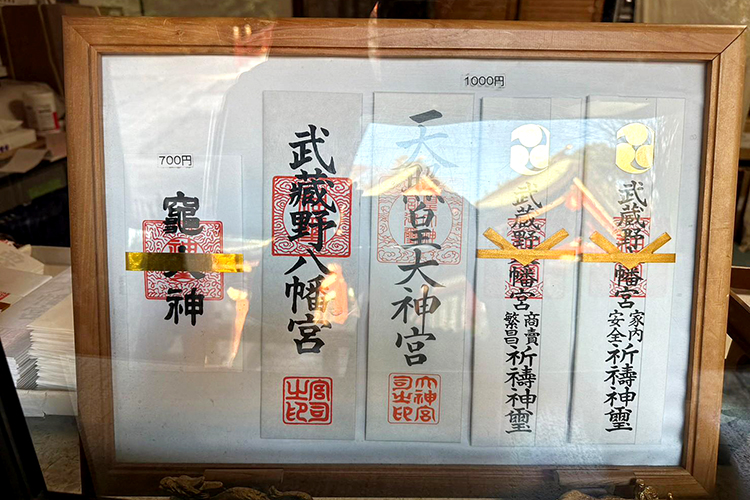 1000円
武蔵野八幡宮
家内
安全
祈禱神璽
武蔵野八幡宮
商賣
繁昌
祈禱神璽
天照皇大神宮
大神宮
司之印
武藏野八幡宮
宮司
之印
700円
竈大神